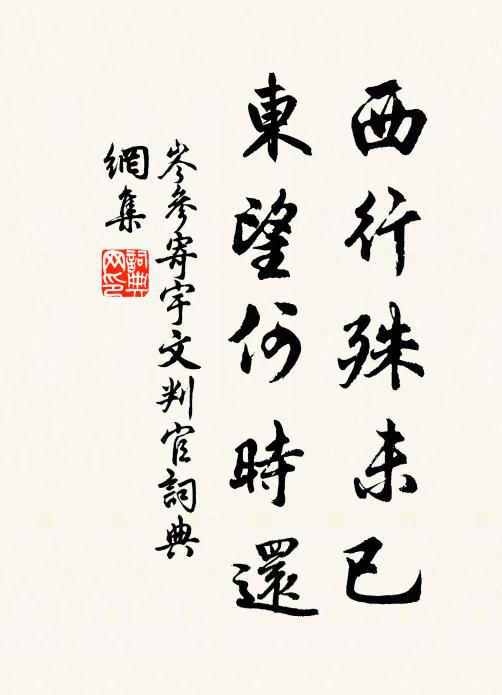 西行殊未已
東望何時還
岑參寄宇文判官詞典
網集
詞典网印